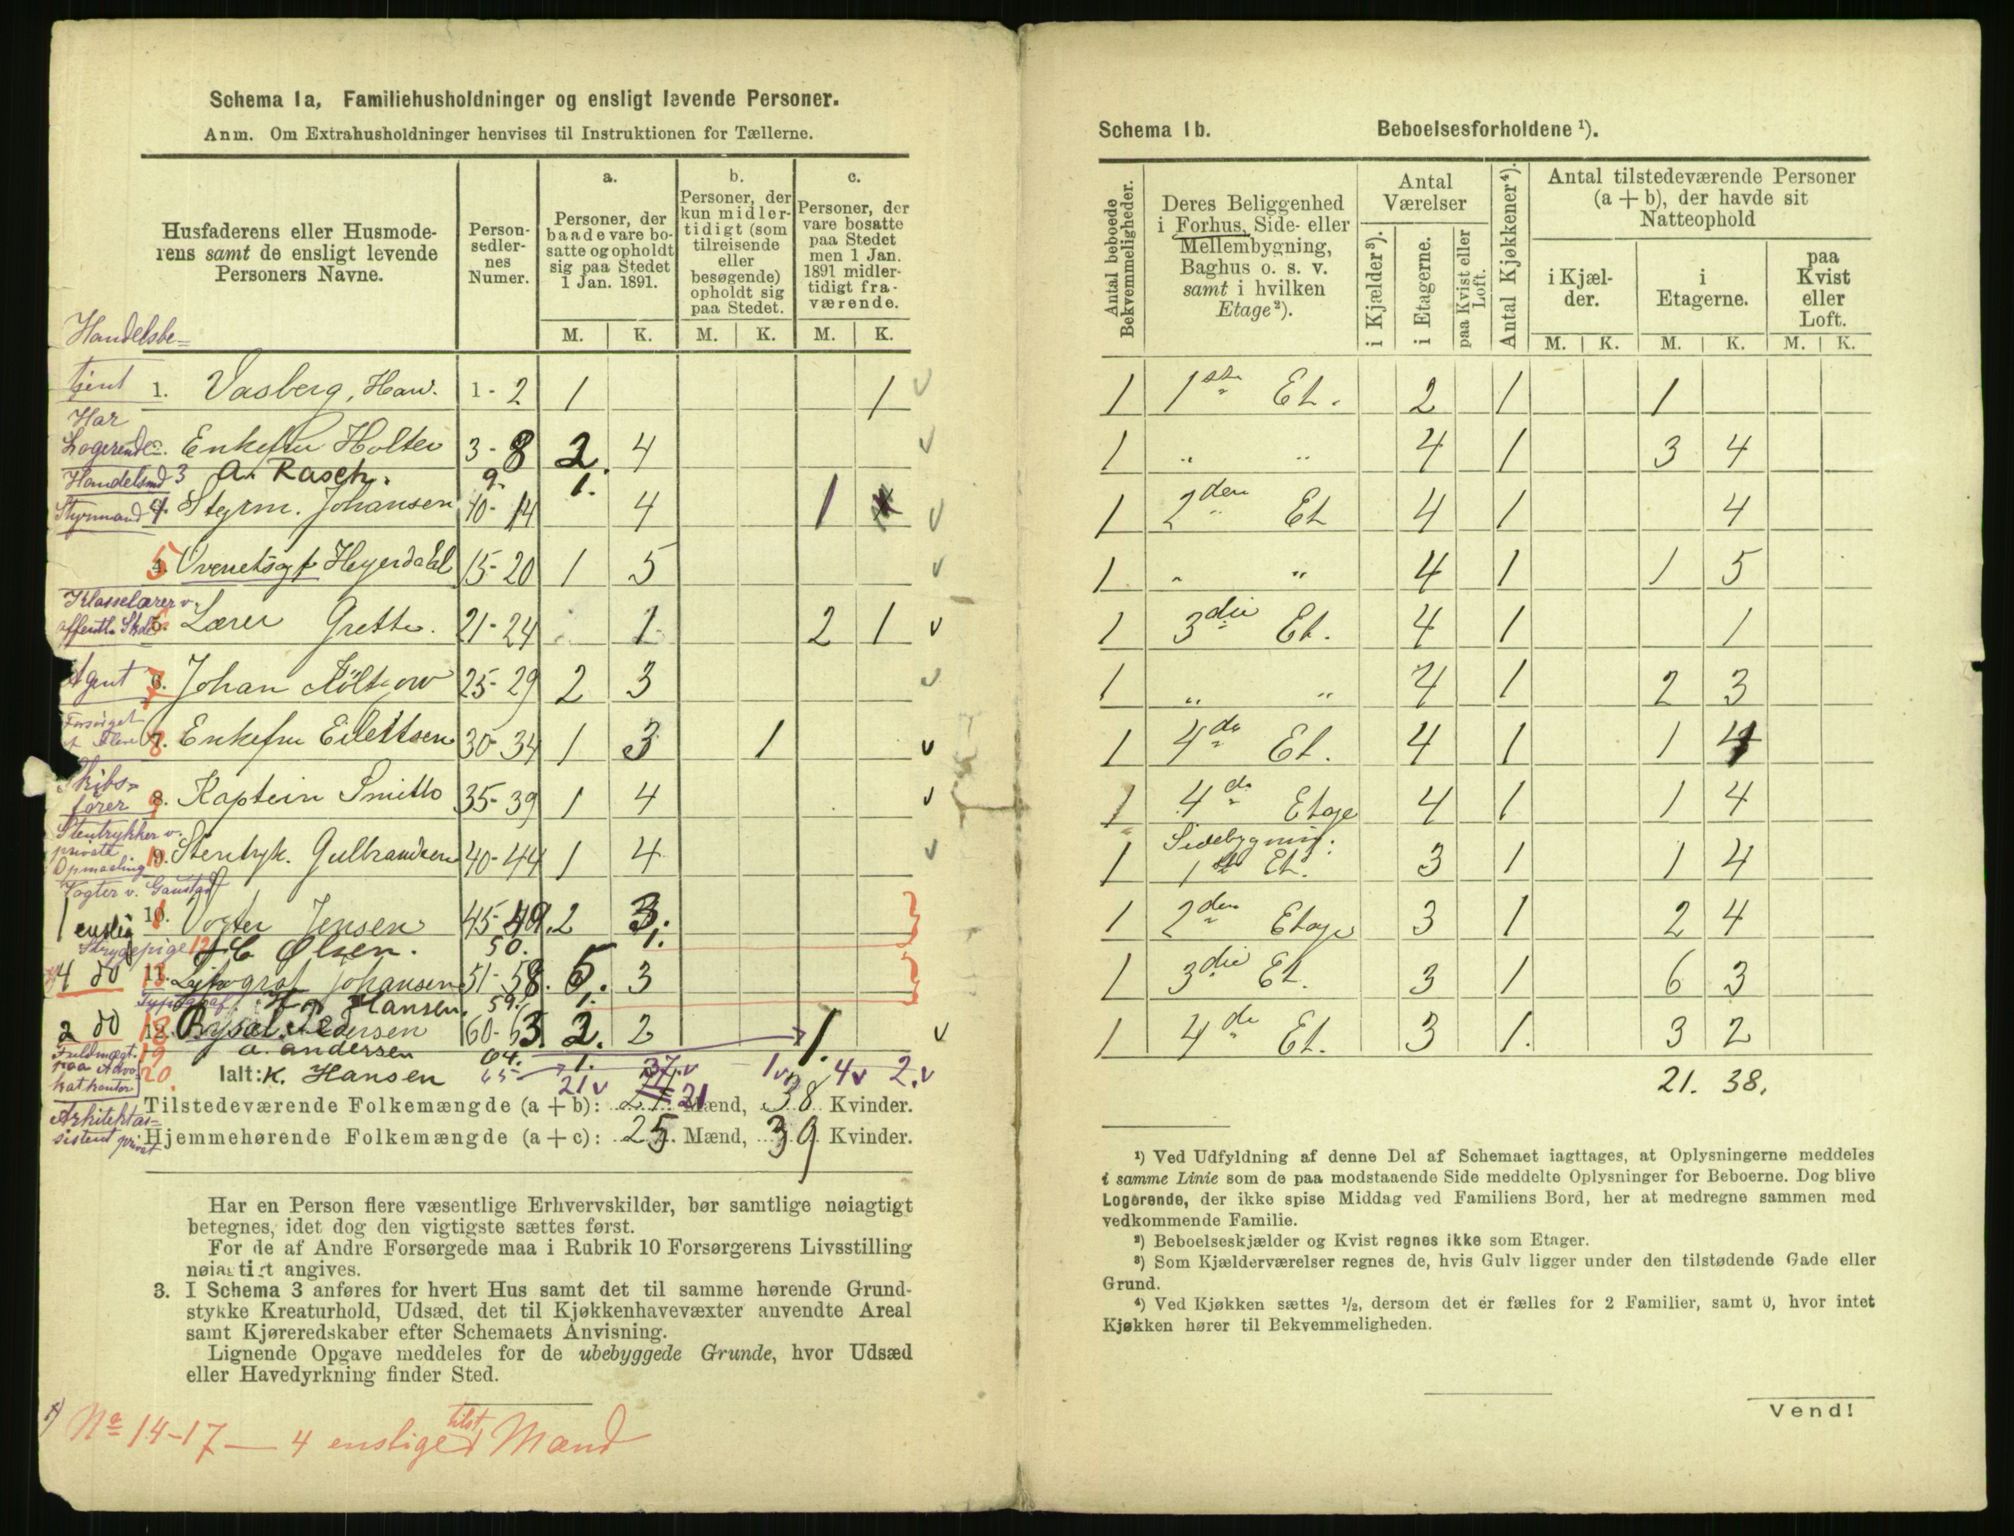 Schema 1a, Familiehusholdninger og ensligt levende Personer.
Anm. Om Extrahusholdninger henvises til Instruktionen for Tællerne.
Husfaderens eller Husmoderens samt de ensligt levende Personers Navne.
Personsedlernes Numer.
a. Personer, der baade vare bosatte og opholdt sig paa Stedet 1 Jan. 1891.
b. Personer, der kun midlertidigt (som tilreisende eller besøgende) opholdt sig paa Stedet.
c. Personer, der vare bosatte paa Stedet men 1 Jan. 1891 midlertidigt fraværende.
M. K. M. K. M. K.
Handelsbe-
tjent 1. Vasberg, Hav. 1-2 1 1
Har
Logerende Enkefru Holter 3-8 2. 4
Handelsmd 3 A. Rasch. 9. 1.
Styrmand 4. Styrm. Johansen 10-14 4 1
5 Overretssagf Heyerdahl 15-20 1 5
Klasselærer v.
offentl. Skole 6. Lærer Grette. 21-24 1 2 1
Agent 7 6. Johan 25-29 2 3
Forsørget
af Flere 8 7. Enkefru Eilettsen 30-34 1 3 1
Skibs-
fører 9 8. Kaptein Smitts 35-39 1 4
Stentrykker v.
private
Opmaaling 10 9. Stentryk. Gulbrandsen 40-44 1 4
Vogter v. Gaustad
10. Vogter Jensen 45-49. 2 3.
1 enslig
Strygepige 12 C Olsen. 50. 1.
4 do 13. Lithograf Johansen 51-58. 5. 3
Typograf Hansen. 59. 1.
2 do 18 12. Pedersen 60-63 2. 2 1.
Fuldmægt.
paa Advo
katkontor 19 a. andersen 64. 1.
20. Ialt: K. Hansen 65 21 v 37. v 1 v 4 v 2. v
Arkitektas-
sistent privat
Tilstedeværende Folkemængde (a + b): 21 Mænd, 38 Kvinder.
Hjemmehørende Folkemængde (a + c): 25. Mænd, 39 Kvinder.
Har en Person flere væsentlige Erhvervskilder, bør samtlige nøiagtigt
betegnes, idet dog den vigtigste sættes først.
For de af Andre Forsørgede maa i Rubrik 10 Forsørgerens Livsstilling
nøiagtigt angives.
3. I Schema 3 anføres for hvert Hus samt det til samme hørende Grund-
stykke Kreaturhold, Udsæd, det til Kjøkkenhavevæxter anvendte Areal
samt Kjøreredskaber efter Schemaets Anvisning.
Lignende Opgave meddeles for de ubebyggede Grunde, hvor Udsæd
eller Havedyrkning finder Sted.
No 14-17 — 4 enslige tilst Mænd
Schema 1b. Beboelsesforholdene ¹).
Antal beboede Bekvemmeligheder.
Deres Beliggenhed i Forhus, Side- eller Mellembygning, Baghus o. s. v. samt i hvilken Etage²).
Antal Værelser
i Kjælder³).
i Etagerne.
paa Kvist eller Loft.
Antal Kjøkkener⁴).
Antal tilstedeværende Personer (a + b), der havde sit Natteophold
i Kjælder.
i Etagerne.
paa Kvist eller Loft.
M. K. M. K. M. K.
1 1ste Et. 2 1 1
1 " " 4 1 3 4
1 2den Et 4 1 4
1 " " 4 1 1 5
1 3die Et. 4 1 1
1 " " 4 1 2 3
1 4de Et. 4 1 1 4
1 4de Etage 4 1 1 4
Sidebygning.
1 1ste Et. 3 1 1 4
1 2den Etage 3 1 2 4
1 3die Et. 3 1 6 3
1 4de Et. 3 1. 3 2
21. 38.
¹) Ved Udfyldning af denne Del af Schemaet iagttages, at Oplysningerne meddeles
i samme Linie som de paa modstaaende Side meddelte Oplysninger for Beboerne. Dog blive
Logerende, der ikke spise Middag ved Familiens Bord, her at medregne sammen med
vedkommende Familie.
²) Beboelseskjælder og Kvist regnes ikke som Etager.
³) Som Kjælderværelser regnes de, hvis Gulv ligger under den tilstødende Gade eller
Grund.
⁴) Ved Kjøkken sættes ½, dersom det er fælles for 2 Familier, samt 0, hvor intet
Kjøkken hører til Bekvemmeligheden.
Vend!